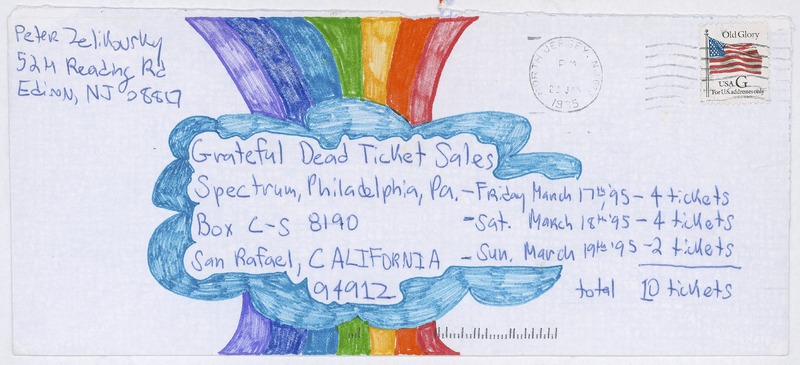 Peter Zelikovsky
52H Reading Rd
Edison, NJ 08817
NORTH JERSEY, N.J.
PM
1995
Old Glory
USA G
For U.S. addresses only
Grateful Dead Ticket Sales
Spectrum, Philadelphia, Pa. - Friday March 17th '95 - 4 tickets
Box C-S 8190 - Sat. March 18th '95 - 4 tickets
San Rafael, CALIFORNIA - Sun. March 19th '95 - 2 tickets
94912 total 10 tickets